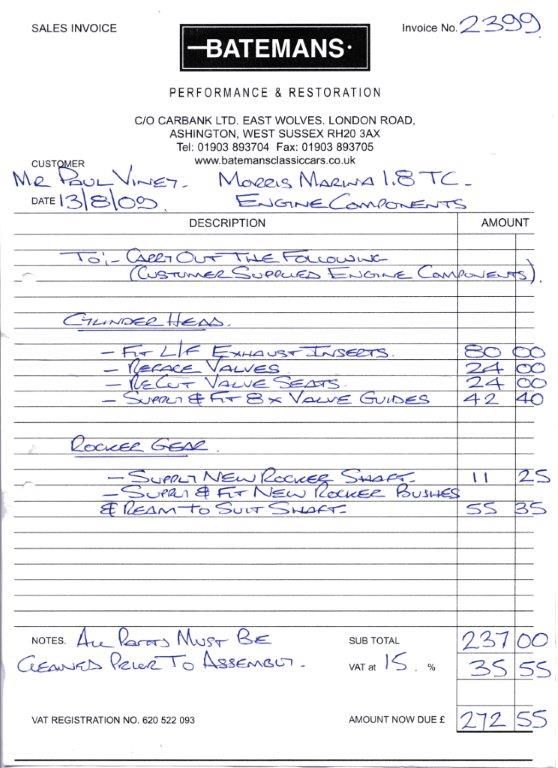 SALES INVOICE
Invoice No. 2399
BATEMANS
PERFORMANCE & RESTORATION
C/O CARBANK LTD. EAST WOLVES. LONDON ROAD,
ASHINGTON, WEST SUSSEX RH20 3AX
Tel: 01903 893704 Fax: 01903 893705
www.batemansclassiccars.co.uk
CUSTOMER
MR PAUL VINEY. MORRIS MARINA 1.8 TC -
DATE 13/8/09. ENGINE COMPONENTS
DESCRIPTION AMOUNT
TO:- CARRY OUT THE FOLLOWING
(CUSTOMER SUPPLIED ENGINE COMPONENTS).
CYLINDER HEAD.
- FIT L/F EXHAUST INSERTS. 80 00
- REFACE VALVES 24 00
- RECUT VALVE SEATS. 24 00
- SUPPLY & FIT 8 x VALVE GUIDES 42 40
ROCKER GEAR.
- SUPPLY NEW ROCKER SHAFT. 11 25
- SUPPLY & FIT NEW ROCKER BUSHES
& REAM TO SUIT SHAFT. 55 35
NOTES. ALL PARTS MUST BE SUB TOTAL 237 00
CLEANED PRIOR TO ASSEMBLY. VAT at 15. % 35 55
VAT REGISTRATION NO. 620 522 093 AMOUNT NOW DUE £ 272 55